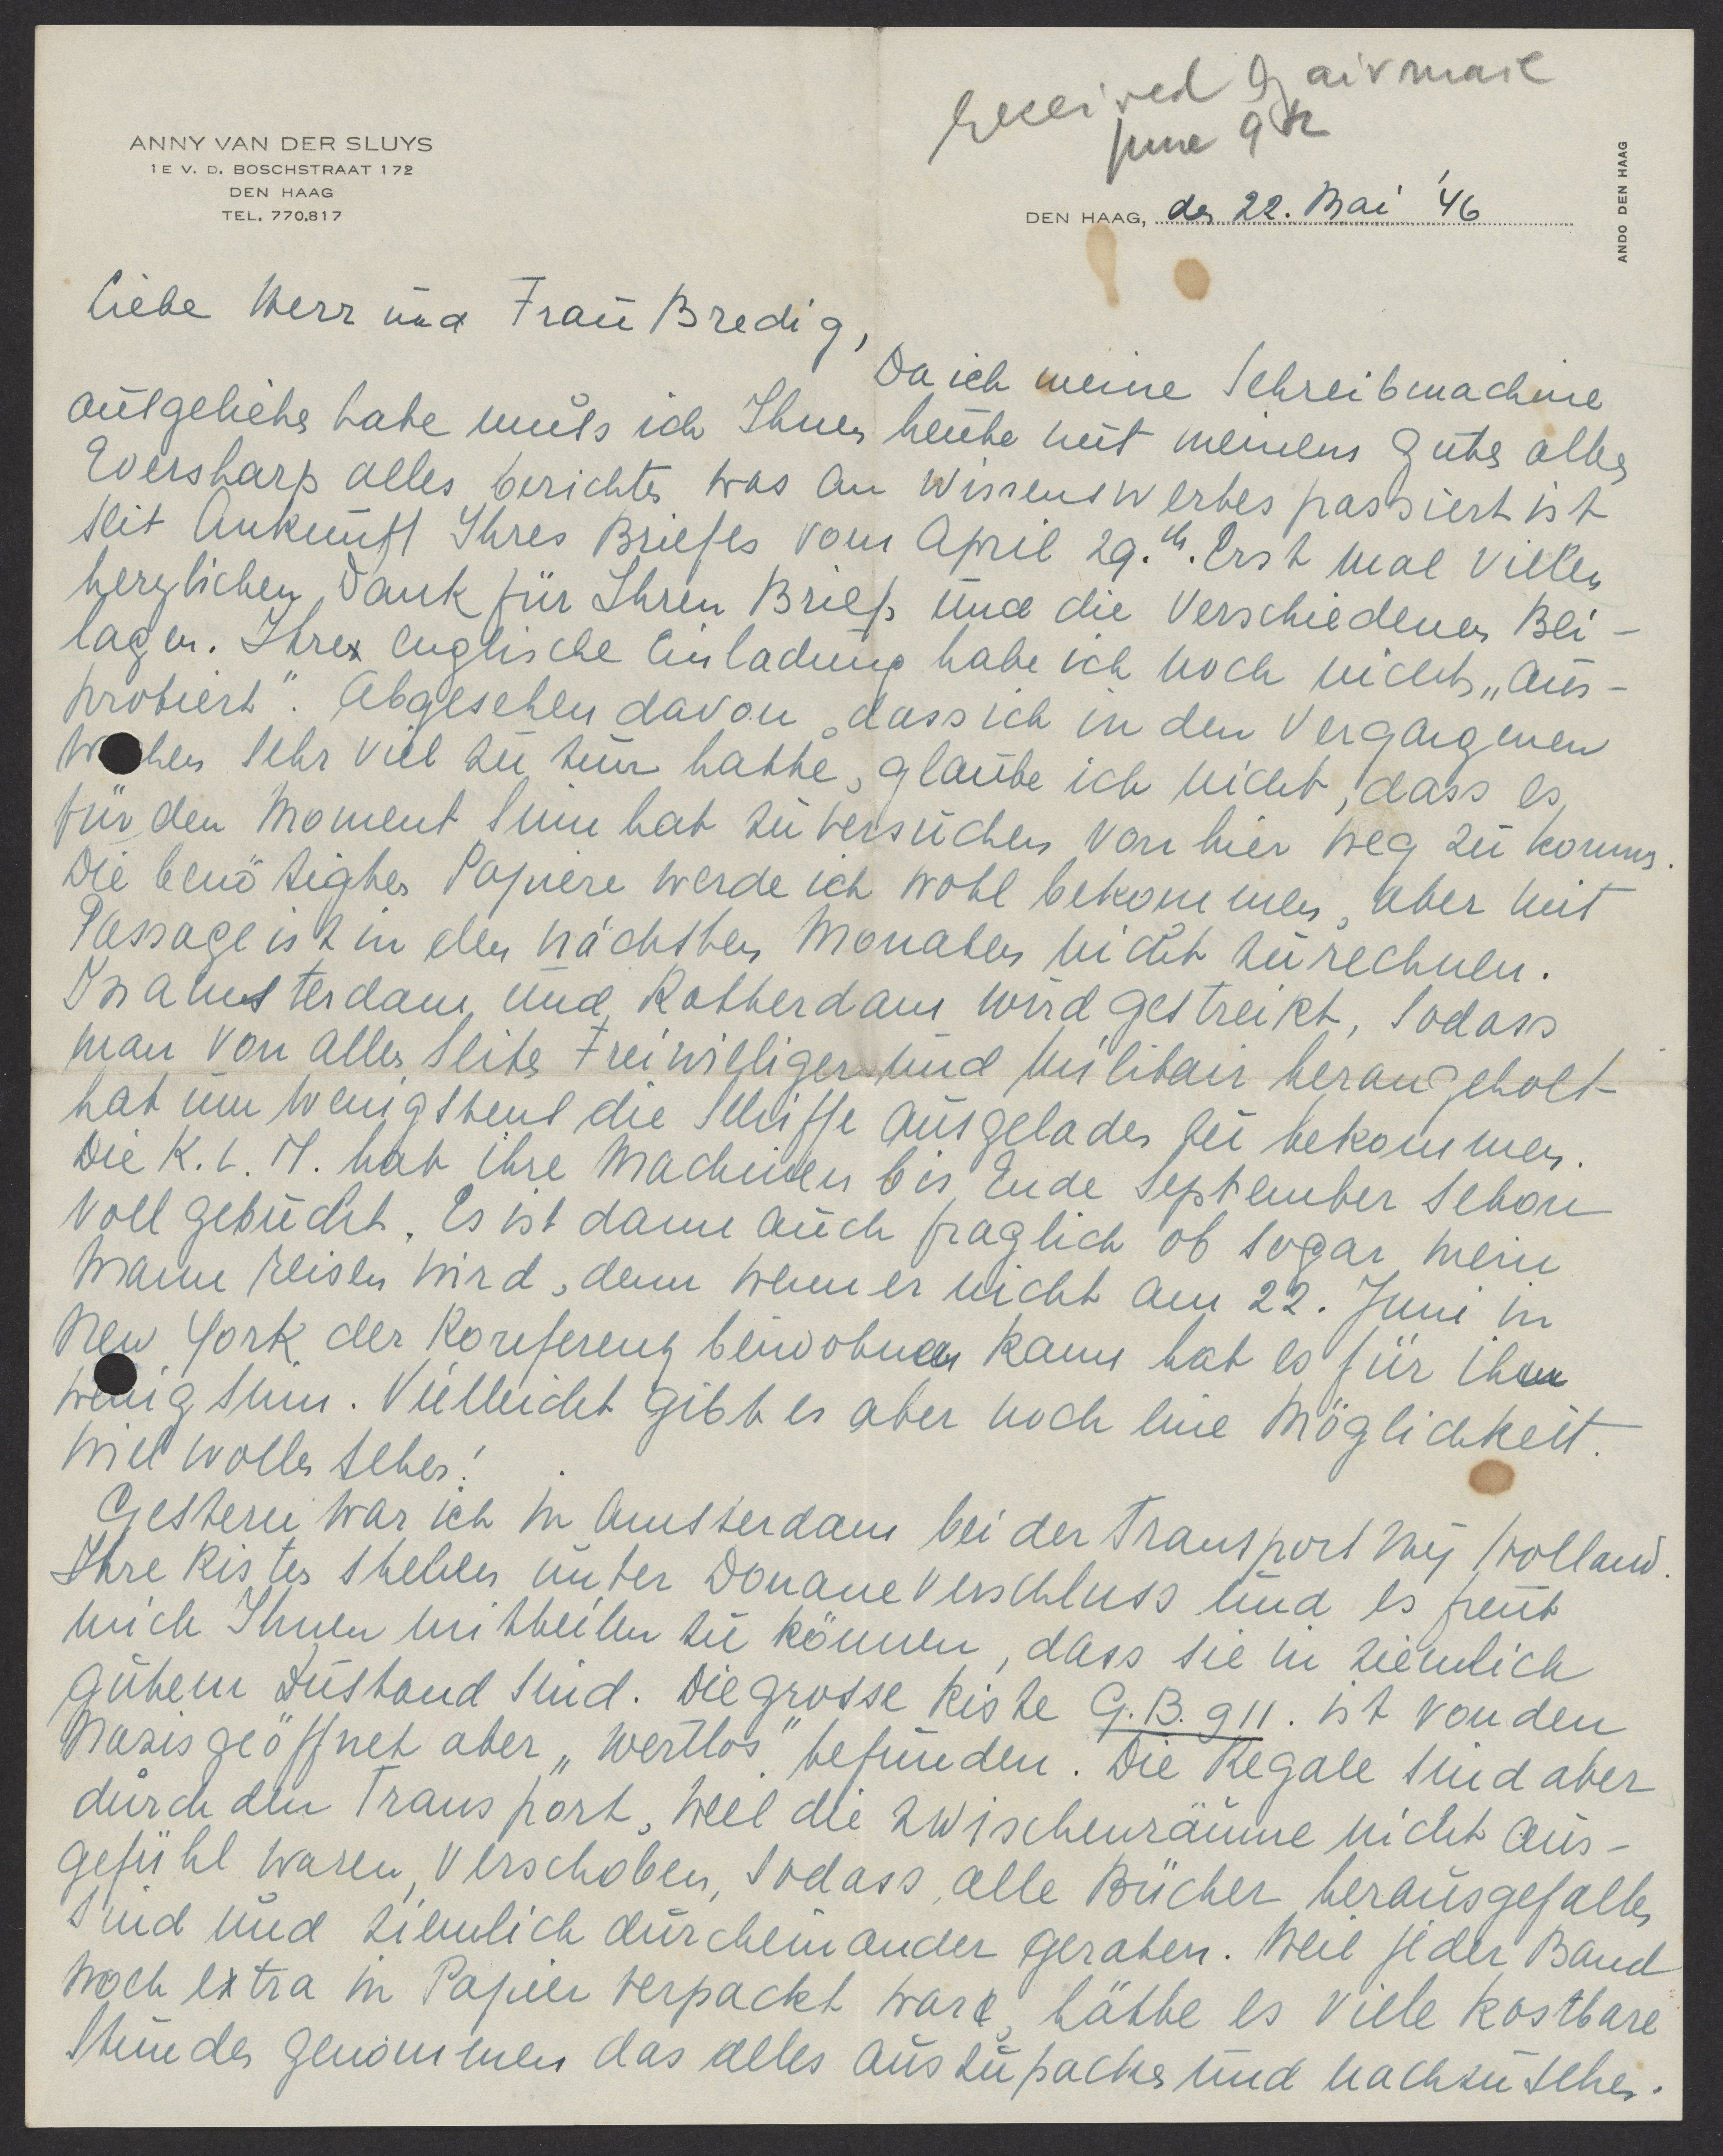 received by airmail
June 9th
ANNY VAN DER SLUYS
1E V. D. BOSCHSTRAAT 172
DEN HAAG
TEL. 770.817
DEN HAAG, den 22. Mai '46
ANDO DEN HAAG
Liebe Herr und Frau Bredig,
Da ich meine Schreibmachine
ausgeliehen habe muss ich Ihnen heute mit meinem guten alten
Eversharp alles berichten was an wissenswertes passiert ist
seit Ankunft Ihres Briefes vom April 29.th. Erst mal vielen
herzlichen Dank für Ihren Brief und die verschiedenen Bei-
lagen. Ihre englische Einladung habe ich noch nicht „aus-
probiert". Abgesehen davon, dass ich in den vergangenen
Wochen sehr viel zu tun hatte, glaube ich nicht, dass es
für den Moment Sinn hat zu versuchen von hier weg zu kommen.
Die benötigten Papiere werde ich wohl bekommen, aber mit
Passage ist in den nächsten Monaten nicht zu rechnen.
In Amsterdam und Rotterdam wird gestreikt, sodass
man von allen Seiten Freiwilliger und Militair herangeholt
hat um wenigstens die Schiffe ausgeladen zu bekommen.
Die K.L.M. hat ihre Machinen bis Ende September schon
voll gebucht. Es ist dann auch fraglich ob sogar mein
Mann reisen wird, denn wenn er nicht am 22. Juni in
New York der Konferenz beiwohnen kann hat es für ihn
wenig Sinn. Vielleicht gibt es aber noch eine Möglichkeit.
Wiel wollen sehen!
Gestern war ich in Amsterdam bei der Transport Mij Holland.
Ihre Kisten stehen unter Douane Verschluss und es freut
mich Ihnen mitteilen zu können, dass sie in ziemlich
gutem Zustand sind. Die grosse Kiste G.B. 911. ist von den
Nazis geöffnet aber „wertlos" befunden. Die Regale sind aber
durch den Transport, weil die Zwischenräume nicht aus-
gefühl waren, verschoben, sodass alle Bücher herausgefallen
sind und ziemlich durcheinander geraten. Weil jeder Band
noch extra in Papier verpackt war, hätte es viele kostbare
Stunden genommen das alles auszupacken und nachzusehen.